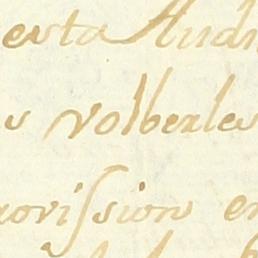 esta Audi
s volberles
rovission en